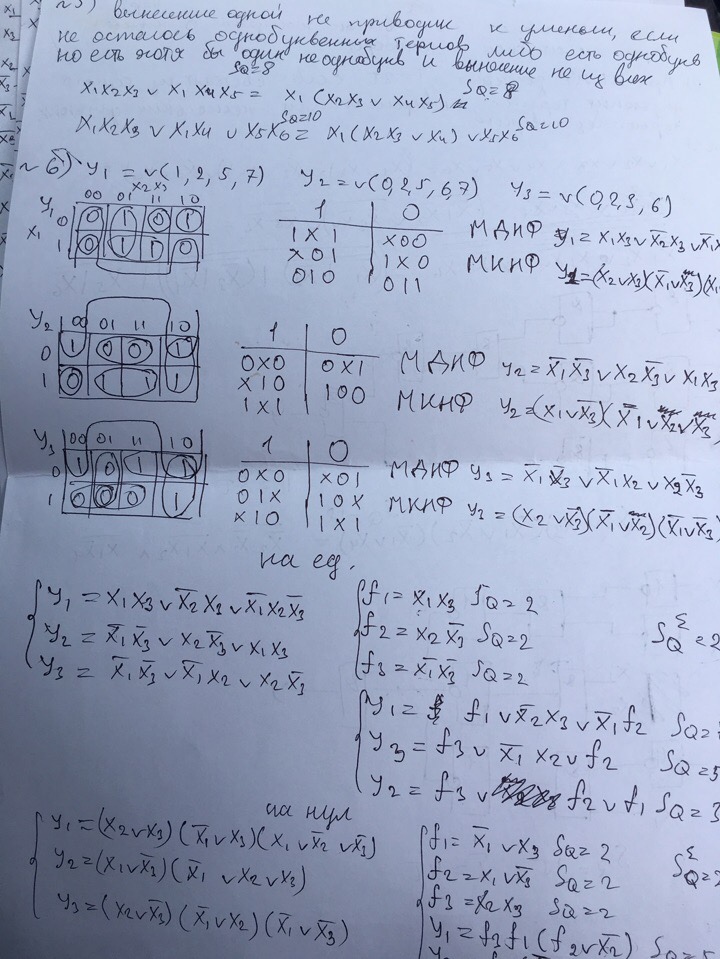 вынесение одной не приводит к уменьш, если
не осталось однобуквенных термов либо есть однобукв
но есть хотя бы один не однобукв и вынесение не из всех
x1x2x3 ∨ x1x4x5 = SQ=8 x1(x2x3 ∨ x4x5) SQ=8
x1x2x3 ∨ x1x4 ∨ x5x6 = SQ=10 x1(x2x3 ∨ x4) ∨ x5x6 SQ=10
~6) y1 = ∨(1, 2, 5, 7) y2 = ∨(0,2,5,6,7) y3 = ∨(0,2,3,6)
x2x3
y1 00 01 11 10
x1 0 0 1 0 1
1 0 1 1 0
1 0
1X1 X00
X01 1X0
010 011
МДНФ y1 = x1x3 ∨ x̄2x3 ∨ x̄1x
МКНФ y1 = (x2∨x3)(x̄1∨x3)(x1
y2 00 01 11 10
0 1 0 0 1
1 0 1 1 1
1 0
0X0 0X1
X10 100
1X1
МДНФ y2 = x̄1x̄3 ∨ x2x̄3 ∨ x1x3
МКНФ y2 = (x1∨x̄3)(x̄1∨x2∨x3
y3 00 01 11 10
0 1 0 1 1
1 0 0 0 1
1 0
0X0 X01
01X 10X
X10 1X1
МДНФ y3 = x̄1x̄3 ∨ x̄1x2 ∨ x2x̄3
МКНФ y2 = (x2∨x̄3)(x̄1∨x2)(x̄1∨x̄3)
на ед.
y1 = x1x3 ∨ x̄2x3 ∨ x̄1x2x̄3
y2 = x̄1x̄3 ∨ x2x̄3 ∨ x1x3
y3 = x̄1x̄3 ∨ x̄1x2 ∨ x2x̄3
f1 = x1x3 SQ=2
f2 = x2x̄3 SQ=2 SQ^Σ=2
f3 = x̄1x̄3 SQ=2
y1 = f1 ∨ x̄2x3 ∨ x̄1f2 SQ=
y3 = f3 ∨ x̄1x2 ∨ f2 SQ=5
y2 = f3 ∨ f2 ∨ f1 SQ=3
на нул
y1 = (x2∨x3)(x̄1∨x3)(x1∨x̄2∨x̄3)
y2 = (x1∨x̄3)(x̄1∨x2∨x3)
y3 = (x2∨x̄3)(x̄1∨x2)(x̄1∨x̄3)
f1 = x̄1∨x3 SQ=2
f2 = x1∨x̄3 SQ=2 SQ^Σ=
f3 = x2x3 SQ=2
y1 = f3f1(f2∨x̄2) SQ=5